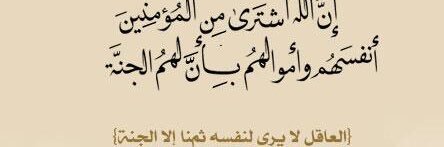 إِنَّ اللهَ اشْتَرَىٰ مِنَ الْمُؤْمِنِينَ
أَنفسَهُم وأَموالهُم بِأَنَّ لهُمُ الجنَّة
{العاقل لا يرى لنفسه ثمنا إلا الجنة}